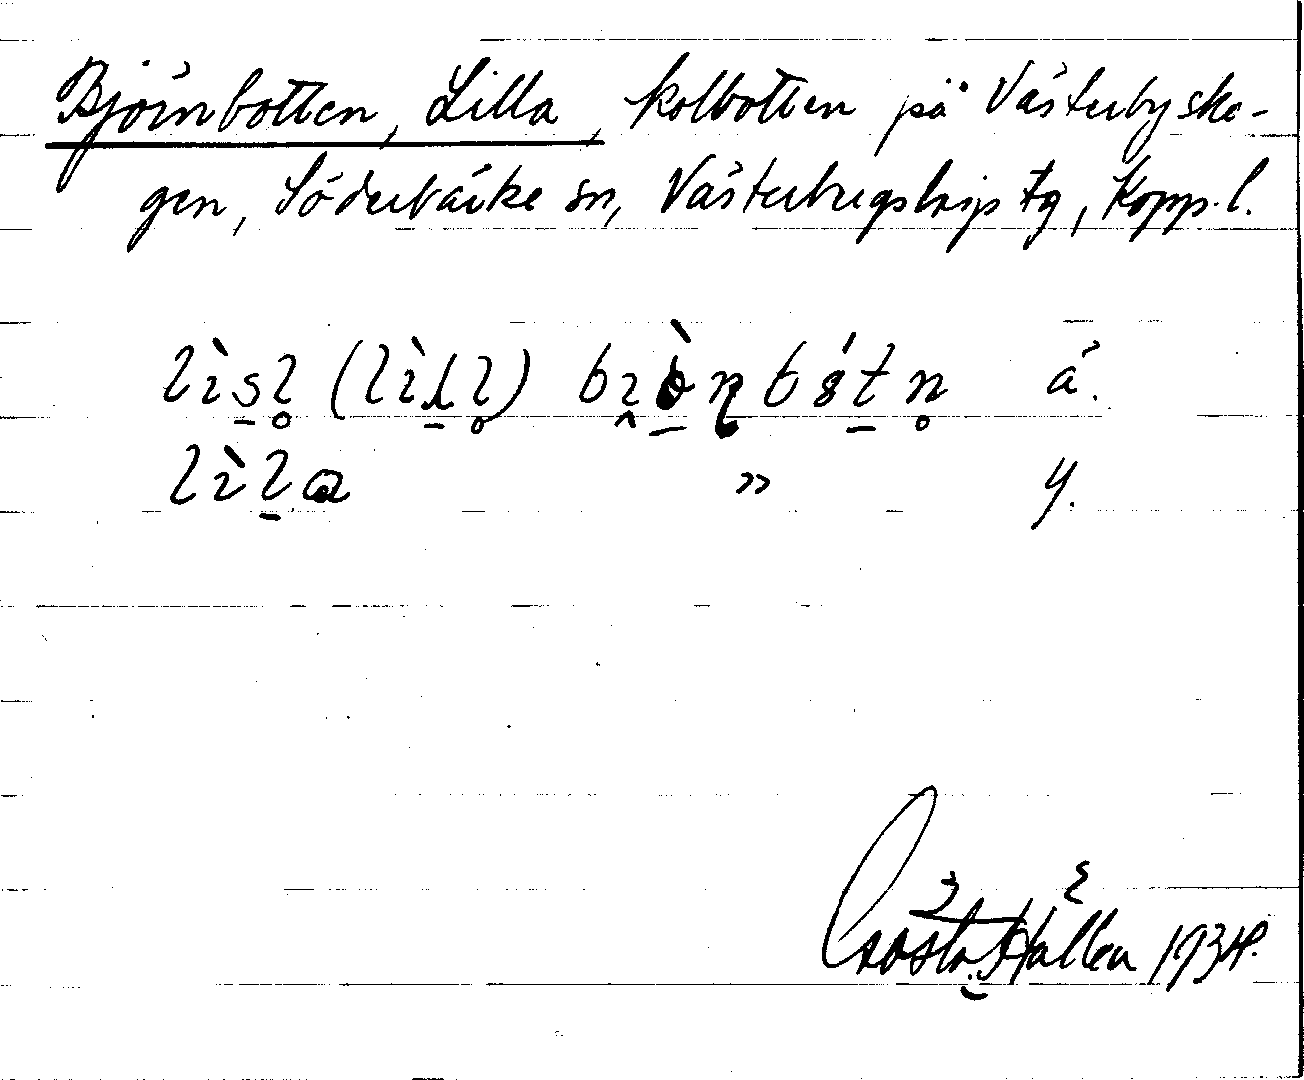 Björnbotten, Lilla, kolbotten på Västerbysko-
gen, Söderbärke sn, Västerbergslags tg, Kopp. l.
ä.
lìla » y.
Gösta Hallén 1934.